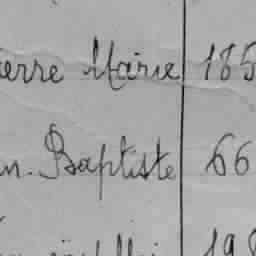 erre Marie 185
n. Baptiste 66